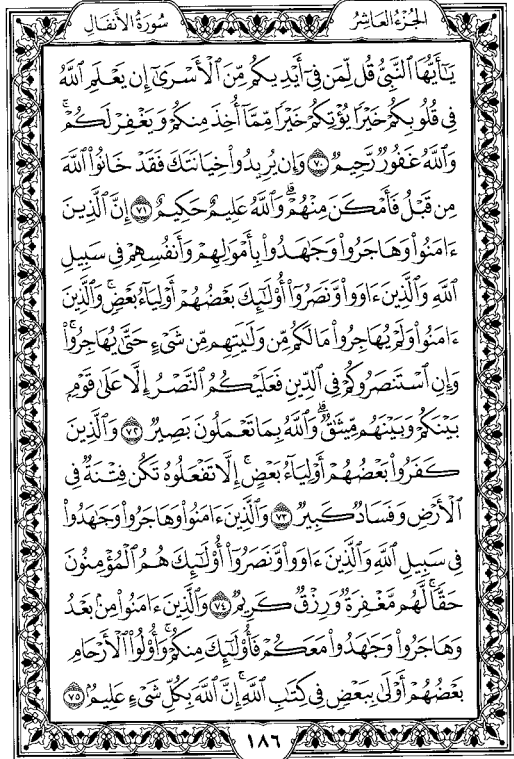 سُورَةُ الأَنفَال
الجُزْءُ العَاشِرُ
يَٰٓأَيُّهَا ٱلنَّبِيُّ قُل لِّمَن فِىٓ أَيْدِيكُم مِّنَ ٱلْأَسْرَىٰٓ إِن يَعْلَمِ ٱللَّهُ
فِى قُلُوبِكُمْ خَيْرًا يُؤْتِكُمْ خَيْرًا مِّمَّآ أُخِذَ مِنكُمْ وَيَغْفِرْ لَكُمْ ۗ
وَٱللَّهُ غَفُورٌ رَّحِيمٌ ٧٠ وَإِن يُرِيدُوا۟ خِيَانَتَكَ فَقَدْ خَانُوا۟ ٱللَّهَ
مِن قَبْلُ فَأَمْكَنَ مِنْهُمْ ۗ وَٱللَّهُ عَلِيمٌ حَكِيمٌ ٧١ إِنَّ ٱلَّذِينَ
ءَامَنُوا۟ وَهَاجَرُوا۟ وَجَٰهَدُوا۟ بِأَمْوَٰلِهِمْ وَأَنفُسِهِمْ فِى سَبِيلِ
ٱللَّهِ وَٱلَّذِينَ ءَاوَوا۟ وَّنَصَرُوٓا۟ أُو۟لَٰٓئِكَ بَعْضُهُمْ أَوْلِيَآءُ بَعْضٍ ۚ وَٱلَّذِينَ
ءَامَنُوا۟ وَلَمْ يُهَاجِرُوا۟ مَا لَكُم مِّن وَلَٰيَتِهِم مِّن شَىْءٍ حَتَّىٰ يُهَاجِرُوا۟ ۚ
وَإِنِ ٱسْتَنصَرُوكُمْ فِى ٱلدِّينِ فَعَلَيْكُمُ ٱلنَّصْرُ إِلَّا عَلَىٰ قَوْمٍۭ
بَيْنَكُمْ وَبَيْنَهُم مِّيثَٰقٌ ۗ وَٱللَّهُ بِمَا تَعْمَلُونَ بَصِيرٌ ٧٢ وَٱلَّذِينَ
كَفَرُوا۟ بَعْضُهُمْ أَوْلِيَآءُ بَعْضٍ ۚ إِلَّا تَفْعَلُوهُ تَكُن فِتْنَةٌ فِى
ٱلْأَرْضِ وَفَسَادٌ كَبِيرٌ ٧٣ وَٱلَّذِينَ ءَامَنُوا۟ وَهَاجَرُوا۟ وَجَٰهَدُوا۟
فِى سَبِيلِ ٱللَّهِ وَٱلَّذِينَ ءَاوَوا۟ وَّنَصَرُوٓا۟ أُو۟لَٰٓئِكَ هُمُ ٱلْمُؤْمِنُونَ
حَقًّا ۚ لَّهُم مَّغْفِرَةٌ وَرِزْقٌ كَرِيمٌ ٧٤ وَٱلَّذِينَ ءَامَنُوا۟ مِنۢ بَعْدُ
وَهَاجَرُوا۟ وَجَٰهَدُوا۟ مَعَكُمْ فَأُو۟لَٰٓئِكَ مِنكُمْ ۚ وَأُو۟لُوا۟ ٱلْأَرْحَامِ
بَعْضُهُمْ أَوْلَىٰ بِبَعْضٍ فِى كِتَٰبِ ٱللَّهِ ۗ إِنَّ ٱللَّهَ بِكُلِّ شَىْءٍ عَلِيمٌۢ ٧٥
١٨٦